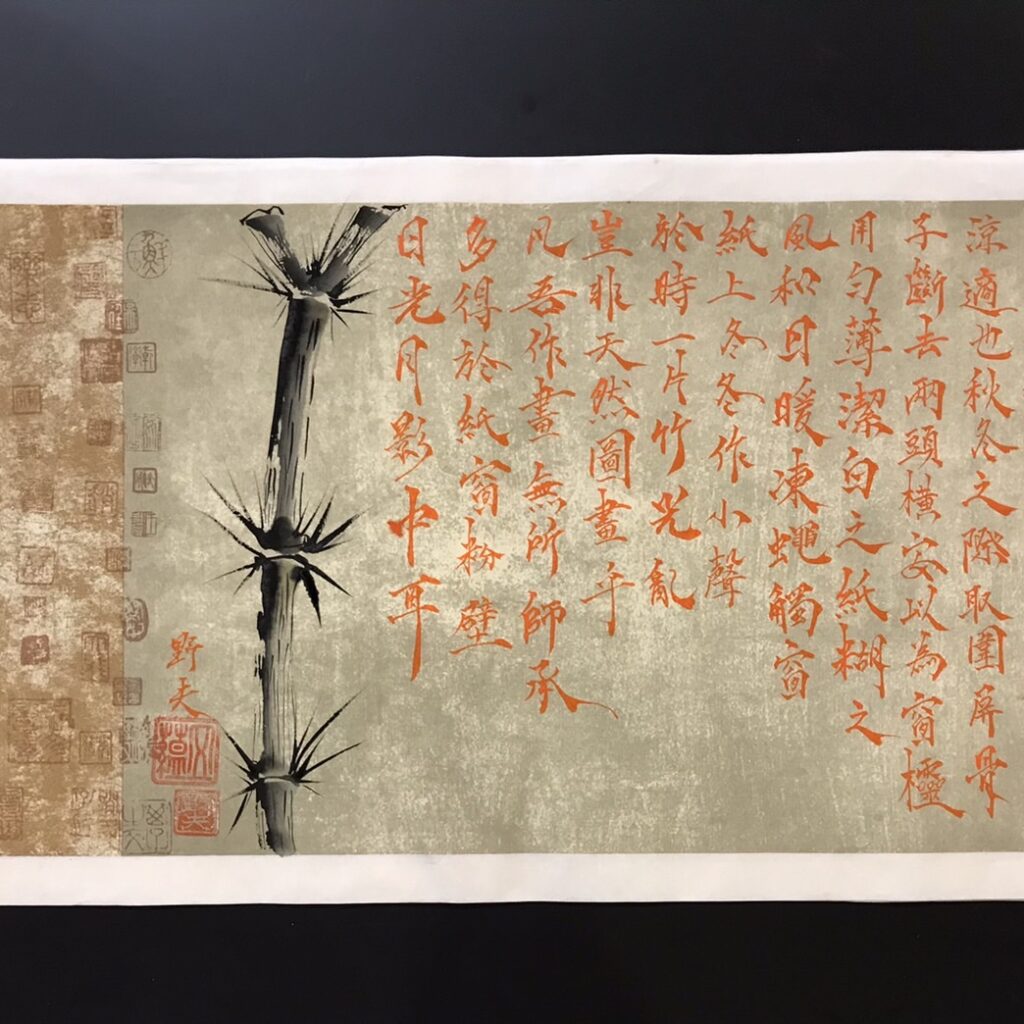 涼適也秋冬之際取圍屏骨
子斷去兩頭橫安以為窗櫺
用勻薄潔白之紙糊之
風和日暖凍蠅觸窗
紙上冬冬作小聲
於時一片竹影亂
豈非天然圖畫乎
凡吾作畫無所師承
多得於紙窗粉壁
日光月影中耳
野夫